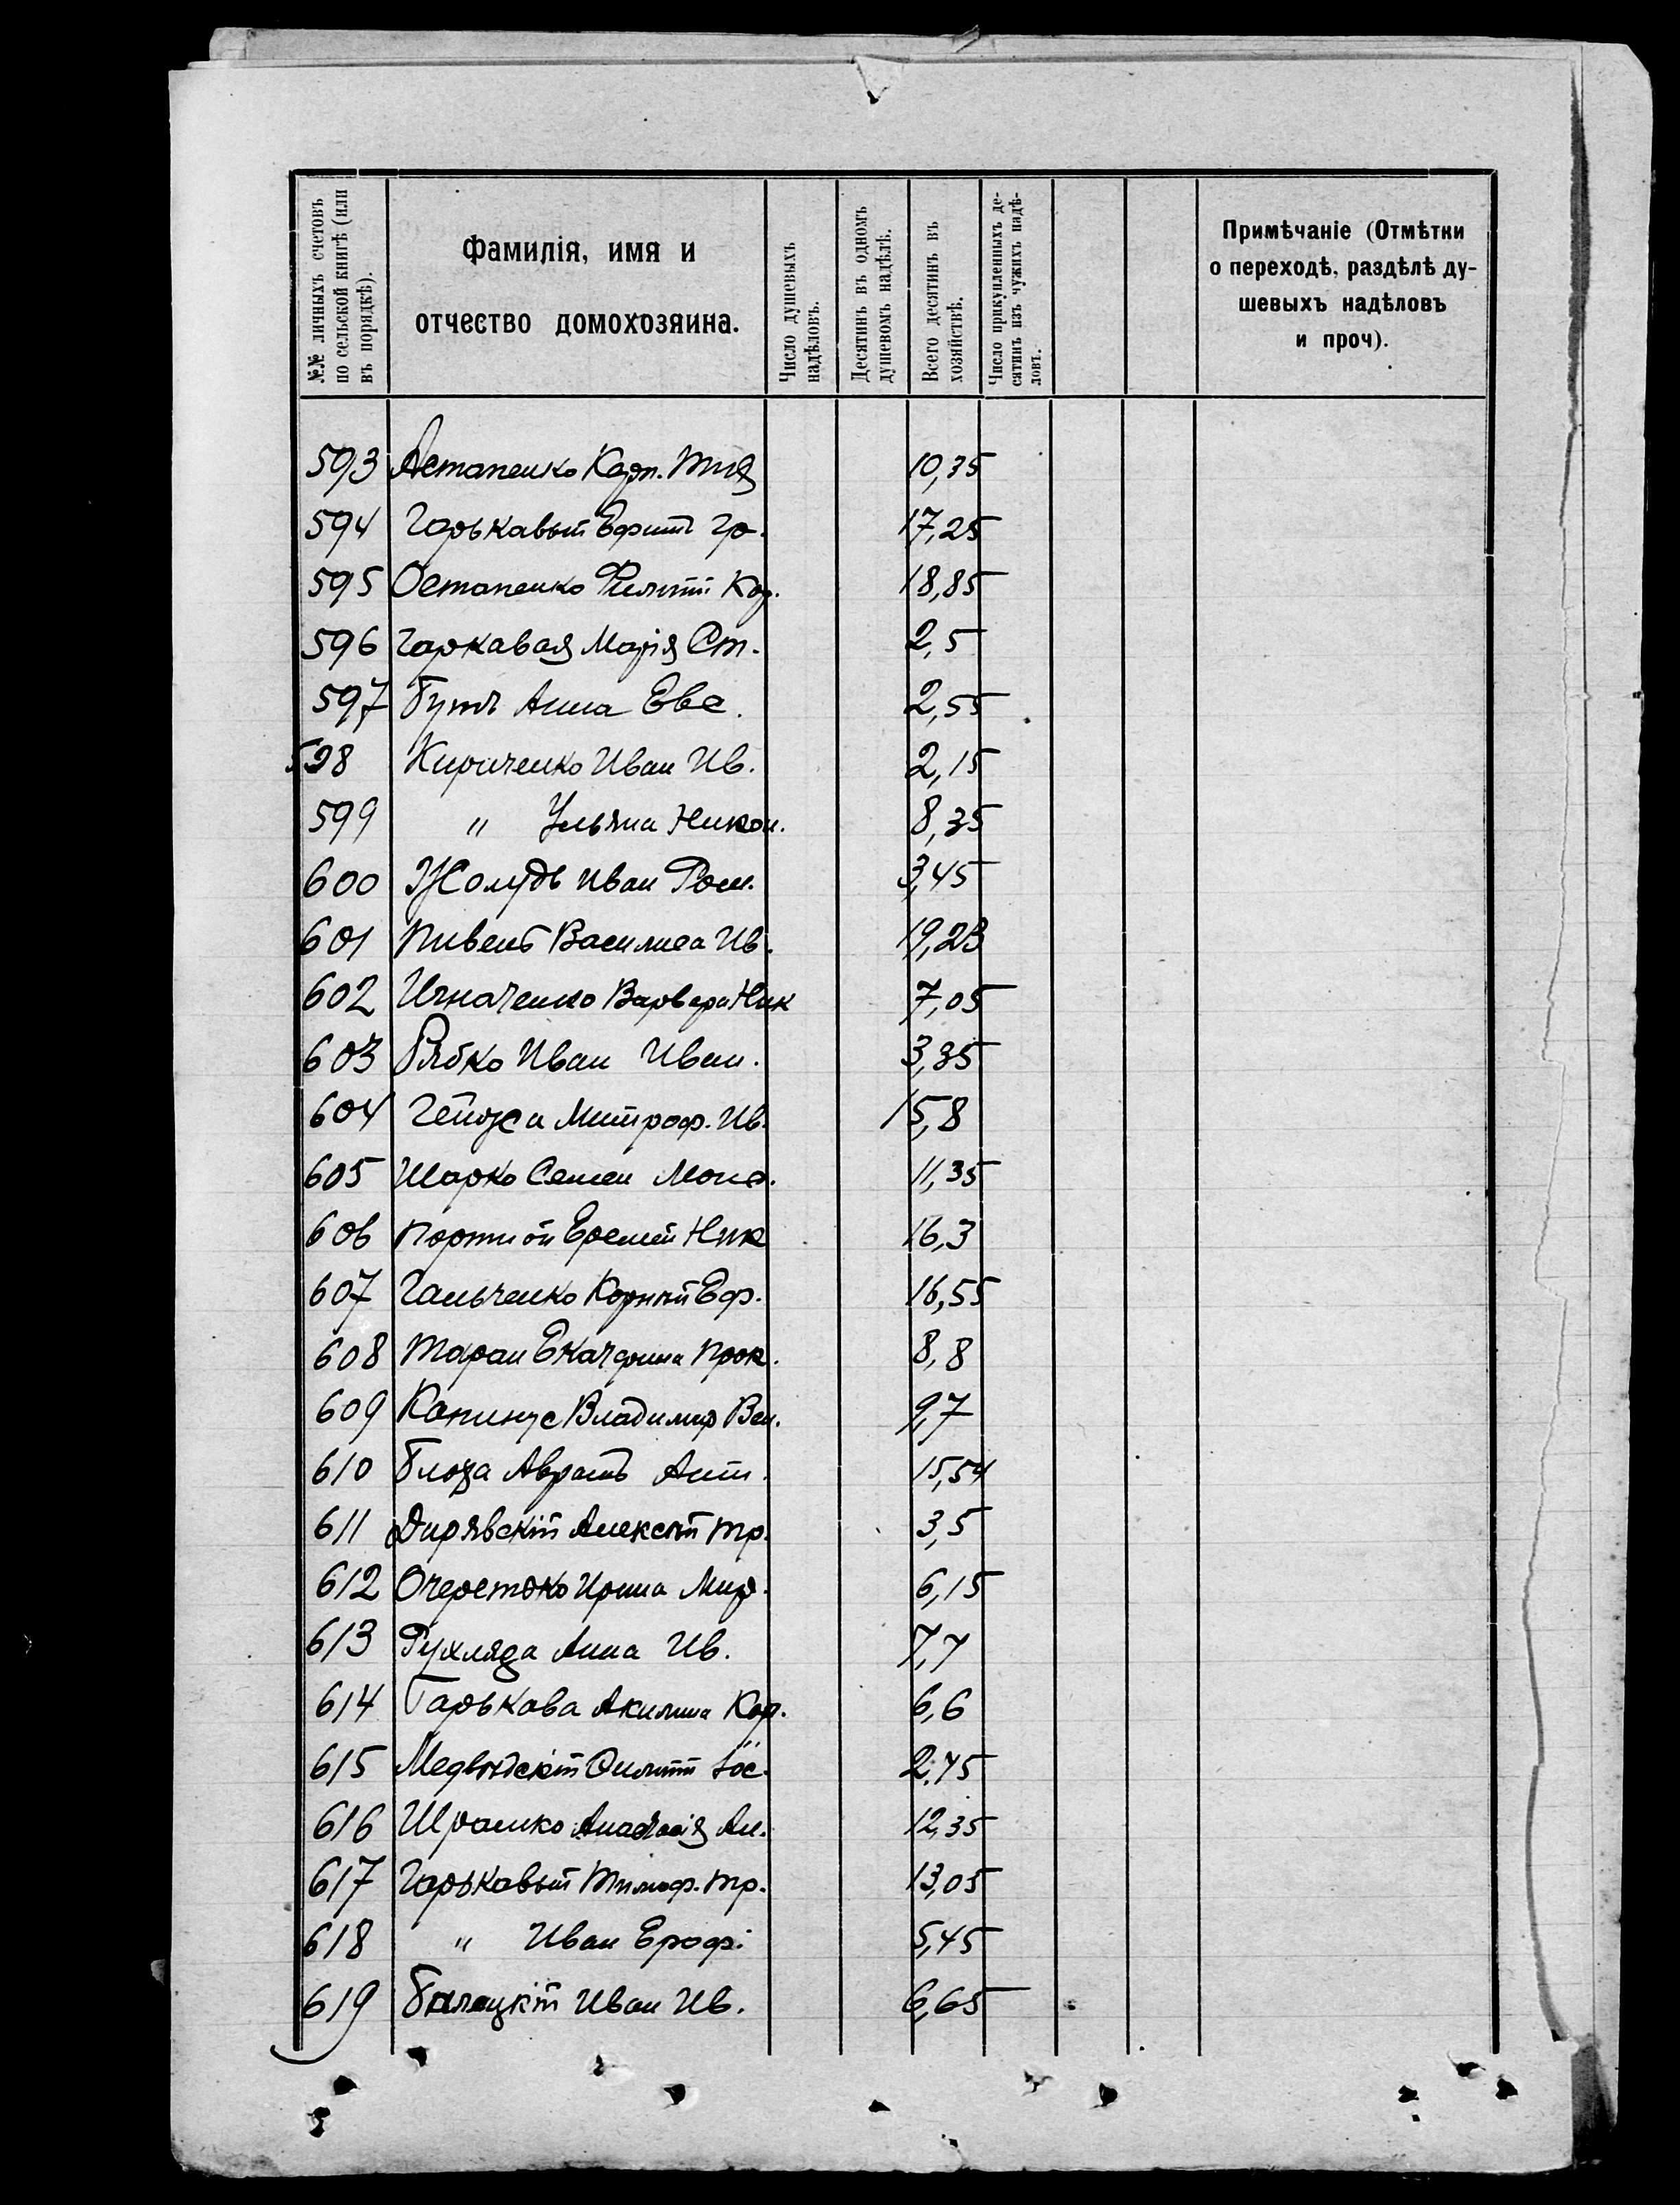 №№ личныхъ счетовъ
по сельской книгѣ (или
въ порядкѣ).
Фамилія, имя и
отчество домохозяина.
Число душевыхъ
надѣловъ.
Десятинъ въ одномъ
душевомъ надѣлѣ.
Всего десятинъ въ
хозяйствѣ.
Число прикупленныхъ де-
сятинъ изъ чужихъ надѣ-
ловъ.
Примѣчаніе (Отмѣтки
о переходѣ, раздѣлѣ ду-
шевыхъ надѣловъ
и проч).
593 Астапенко Карп. 10,35
594 Горькавый Ефимъ Гр. 17,25
595 Остапенко Филиппъ Кар. 18,85
596 Гаркавая Марія Ст. 2,5
597 Бутъ Анна Евс. 2,55
598 Кириченко Иван Ив. 2,15
599 " Ульяна Никон. 8,35
600 Жолудь Иван Ром. 3,45
601 Пивень Василиса Ив. 19,23
602 Игнатенко Варвара Ник 7,05
603 Рябко Иван Иван. 3,35
604 Митроф. Ив. 15,8
605 Шарко Семен 11,35
606 Портной Еремей Ник 16,3
607 Гальченко Корній Еф. 16,55
608 Таран Екатерина Прок. 8,8
609 Капинус Владимир Вас. 9,7
610 Блоха Аврамъ Ант. 15,54
611 Дирявскій Алексѣй Тр. 3,5
612 Очеретько Ирина Мир. 6,15
613 Рухляда Анна Ив. 7,7
614 Гарькава Акилина Кар. 6,6
615 Медвѣдскій Филиппъ Іос. 2,75
616 Шрамко Анастасія Ан. 12,35
617 Гарькавый Тимоф. Тр. 13,05
618 " Иван Ероф. 5,45
619 Балацкій Иван Ив. 6,65